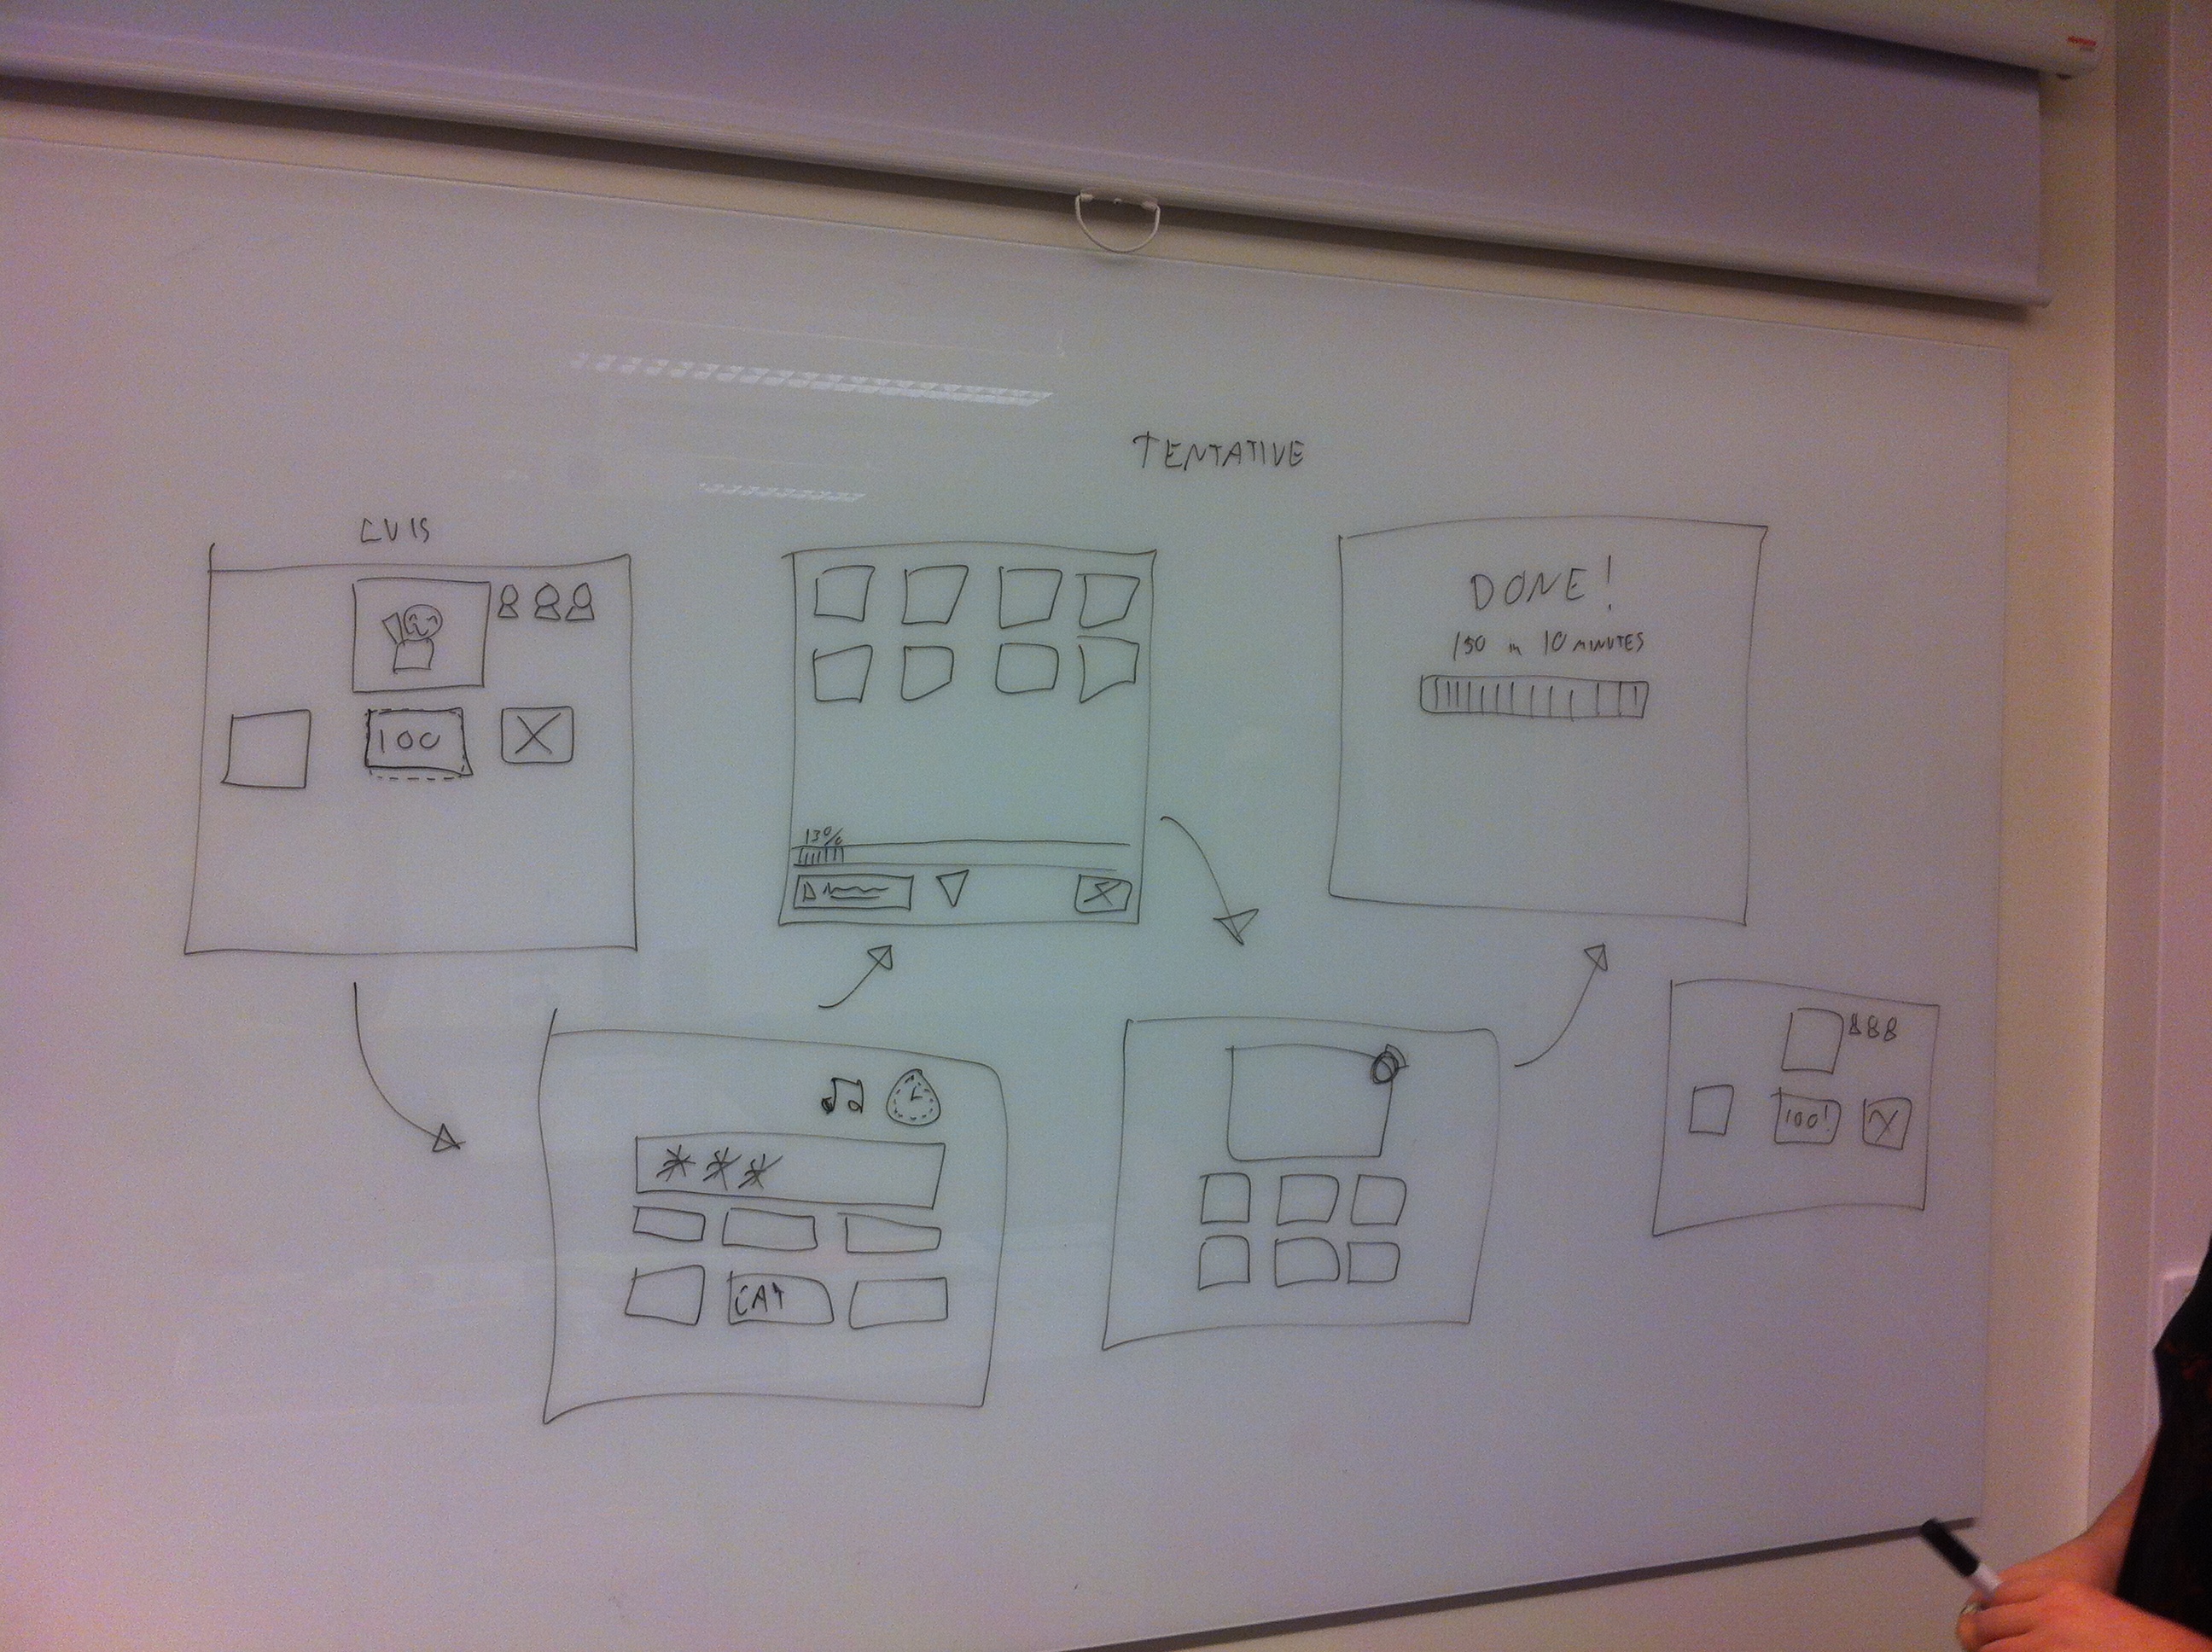 TENTATIVE
LVIS
100
13%
DONE!
150 in 10 MINUTES
CAT
100!